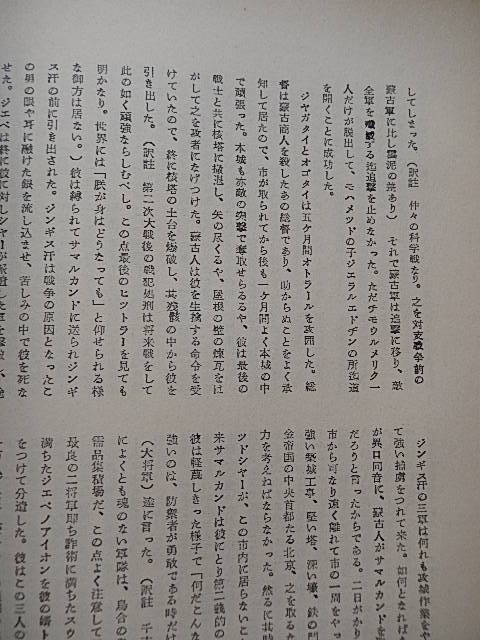 してしまった。（訳註　仲々の科学戦なり。之を対支戦争前の
蒙古軍に比し雲泥の差あり）　それで蒙古軍は追撃に移り、敵
全軍を殲滅する迄追撃を止めなかった。ただチモウルメリク一
人だけが脱出して、モハメッドの子ジエラルエドヂンの所迄道
を開くことに成功した。
ジヤガタイとオゴタイは五ケ月間オトラールを攻囲した。総
督は蒙古商人を殺したあの総督であり、助からぬことをよく承
知して居たので、市が取られてから後も一ケ月間よく本城の中
で頑張った。本城も亦敵の突撃で奪取せらるるや、彼は最後の
戦士と共に核塔に撤退し、矢の尽くるや、屋根の壁の煉瓦をは
がして之を攻者になげつけた。蒙古人は彼を生擒する命令を受
けていたので、終に核塔の土台を爆破し、其残骸の中から彼を
引き出した。（訳註　第二次大戦後の戦犯処刑は将来戦をして
此の如く頑強ならしむべし。この点最後のヒットラーを見ても
明かなり。世界には「朕が身はどうなっても」と仰せられる様
な御方は居ない。）彼は縛られてサマルカンドに送られジンギ
ス汗の前に引き出された。ジンギス汗は戦争の原因となったこ
の男の眼や耳に融けた銀を流し込ませ、苦しみの中で彼を死な
せた。ジエベは終に彼に対しシヤーが派遣した軍を撃破し、
ジンギス汗の三軍は何れも攻城作業を
て強い捕虜をつれて来た。如何となれば
が異口同音に、蒙古人がサマルカンドを
だろうと想ったからである。二日がかり
市から可なり遠く離れて市の一周をやっ
強い築城工事、堅い塔、深い壕、鉄の門
金帝国の中央首都たる北京、之を取るた
力を考えねばならなかった。然るに其時
ツドシヤーが、この市内に居らないこと
来サマルカンドは彼にとり第二義的の
彼は軽蔑しきった様子で「何だこんな
強いのは、防禦者が勇敢である時だけ
（大将軍）達に言った。（訳註　千
によくとも魂のない軍隊は、烏合の
需品集積場だ、この点よく注意して
最良の二将軍即ち詐術に満ちたスウ
満ちたジエベノアイオンを彼の婿ト
をつけて分遣した。彼はこの三人の